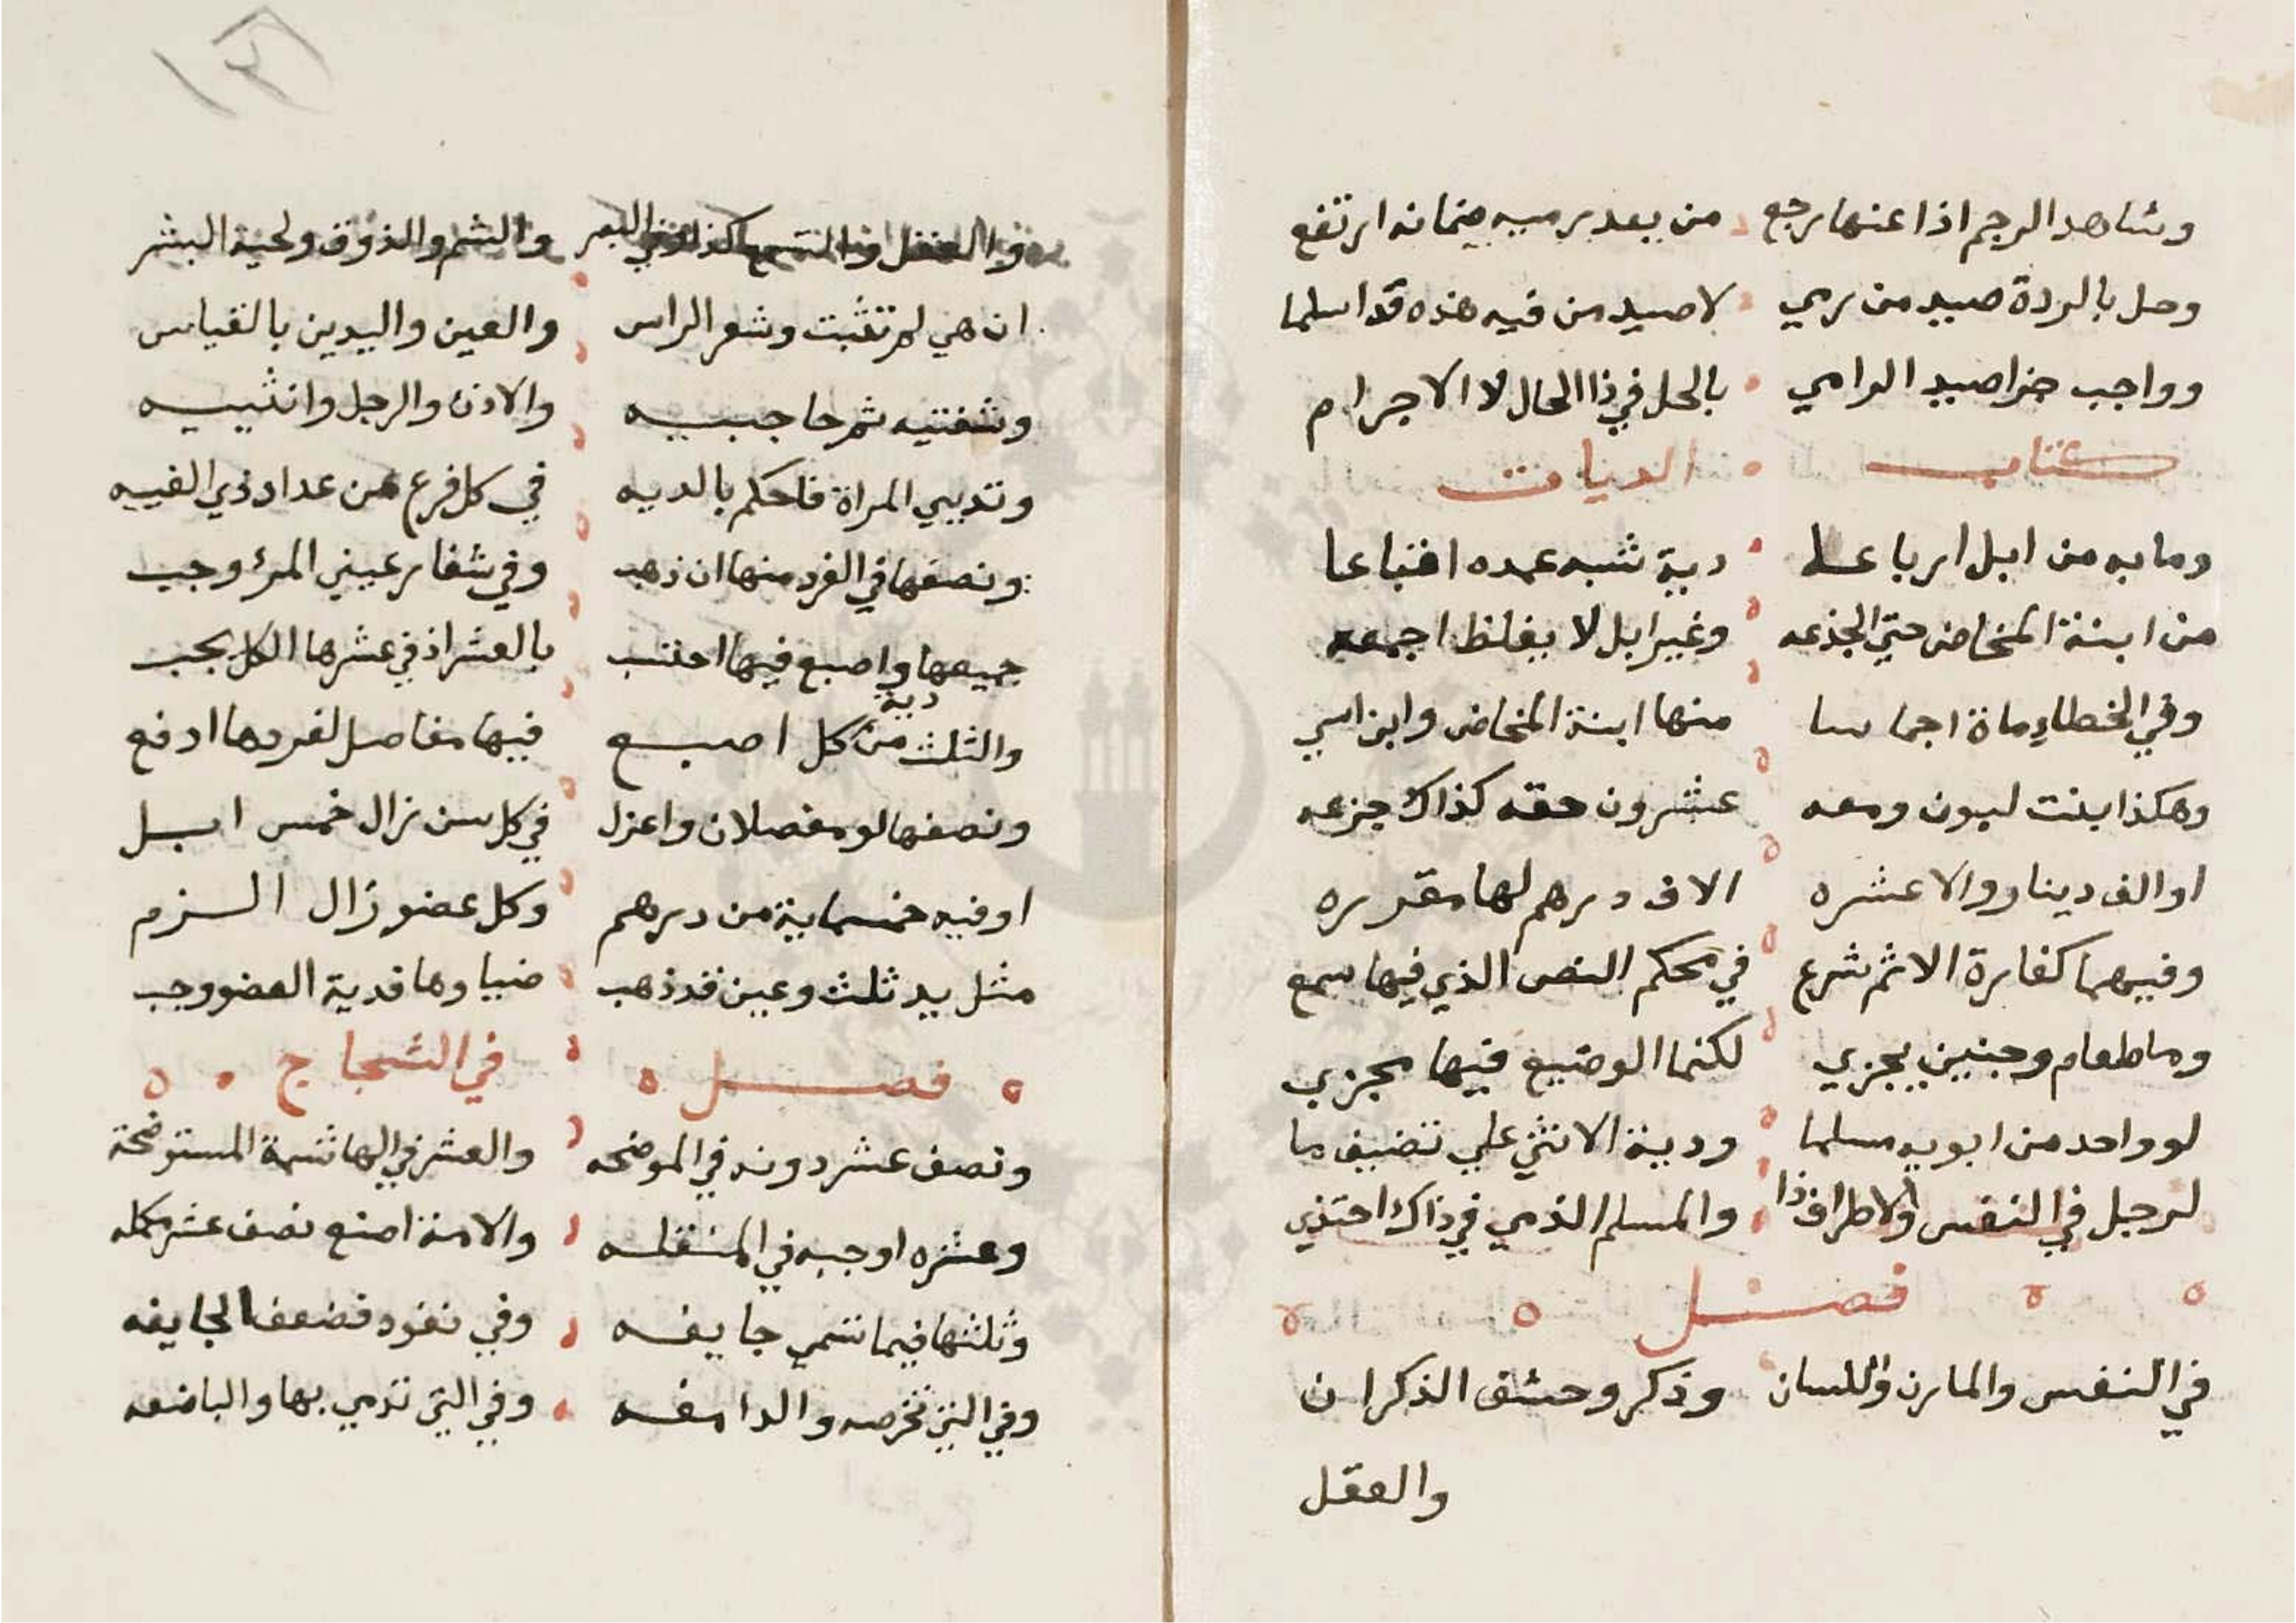 وشاهد الرجم اذا عنها رجع من بعد رميه ضمانه ارتفع
وحل بالردة صيد من رمي لا صيد من فيه هذه قد اسلما
وواجب جزا صيد الرامي بالحل في ذا الحال لا الاجرام
كتاب الديات
وما به من ابل ارباعا دية شبه عمده اقتباعا
من ابنة المخاض حتي الجذعه وغير ابل لا يغلظ اجمعه
وفي الخطاء ماة اجماسا منها ابنة المخاض وابن اسي
وهكذا بنت لبون ومعه عشرون حقه كذاك جزعه
او الف دينار والا عشره الاف درهم لها مقدره
وفيهما كفارة الاثم شرع في محكم النص الذي فيها سمع
وما طعام وجنين يجزي لكنما الوضيع فيها مجزي
لو واحد من ابويه مسلما ودية الانثي علي تنضيف ما
لرجل في النفس والاطراف ذا والمسلم الذمي في ذاك احتذي
فصل
في النفس والمارن واللسان وذكر وحشف الذكران
والعقل
والعقل والسمع كذا وفي البصر والشم والذوق ولحية البشر
ان هي لم تثبت وشعر الراس والعين واليدين بالقياس
وشفتيه ثم حاجبيه والاذن والرجل وانثييه
وتديي المراة فاحكم بالديه في كل فرع من عداد ذي الفيه
ونصفها في الفرد منها ان ذهب وفي شفار عيني المرء وجب
جميعها واصبع فيها احتسب بالعشر اذ في عشرها الكل يجب
والثلث من دية كل اصبع فيها مفاصل لفردها ادفع
ونصفها لو مفصلان واعزل في كل سن نزال خمس ابل
او فيه خمسماية من درهم وكل عضو زال الزم
مثل يد ثلث وعين قد ذهب ضياوها فدية العضو وجب
فصل في الشجاج
ونصف عشر دونه في الموضحه والعشر في الهاشمة المستوضحة
وعشره اوجبه في المنقله والامة اصنع نصف عشر مكله
وثلثها فيما تسمي جايفه وفي نفود فضعف الجايفه
وفي التي تخرصه والدامغه وفي التي تدمي بها والباضعه